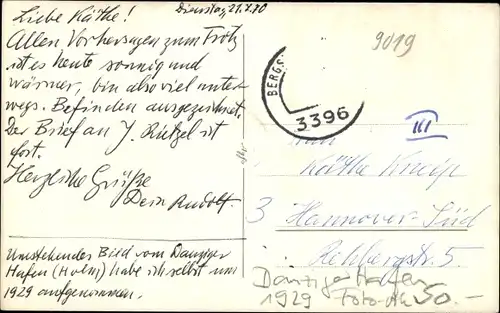 Dienstag, 21.4.70
Liebe Käthe!
Allen Vorhersagen zum Trotz
ist es heute sonnig und
wärmer, bin also viel unter-
wegs. Befinden ausgezeichnet.
Der Brief an J. Rützel ist
fort.
Herzliche Grüße
Dein Rudolf.
Umstehendes Bild vom Danziger
Hafen (Holm) habe ich selbst um
1929 aufgenommen.
9019
BERGS
3396
III
Käthe Kneip
3 Hannover-Süd
Rehbergstr. 5
Danziger Hafen
1929 Foto-AK 50.-